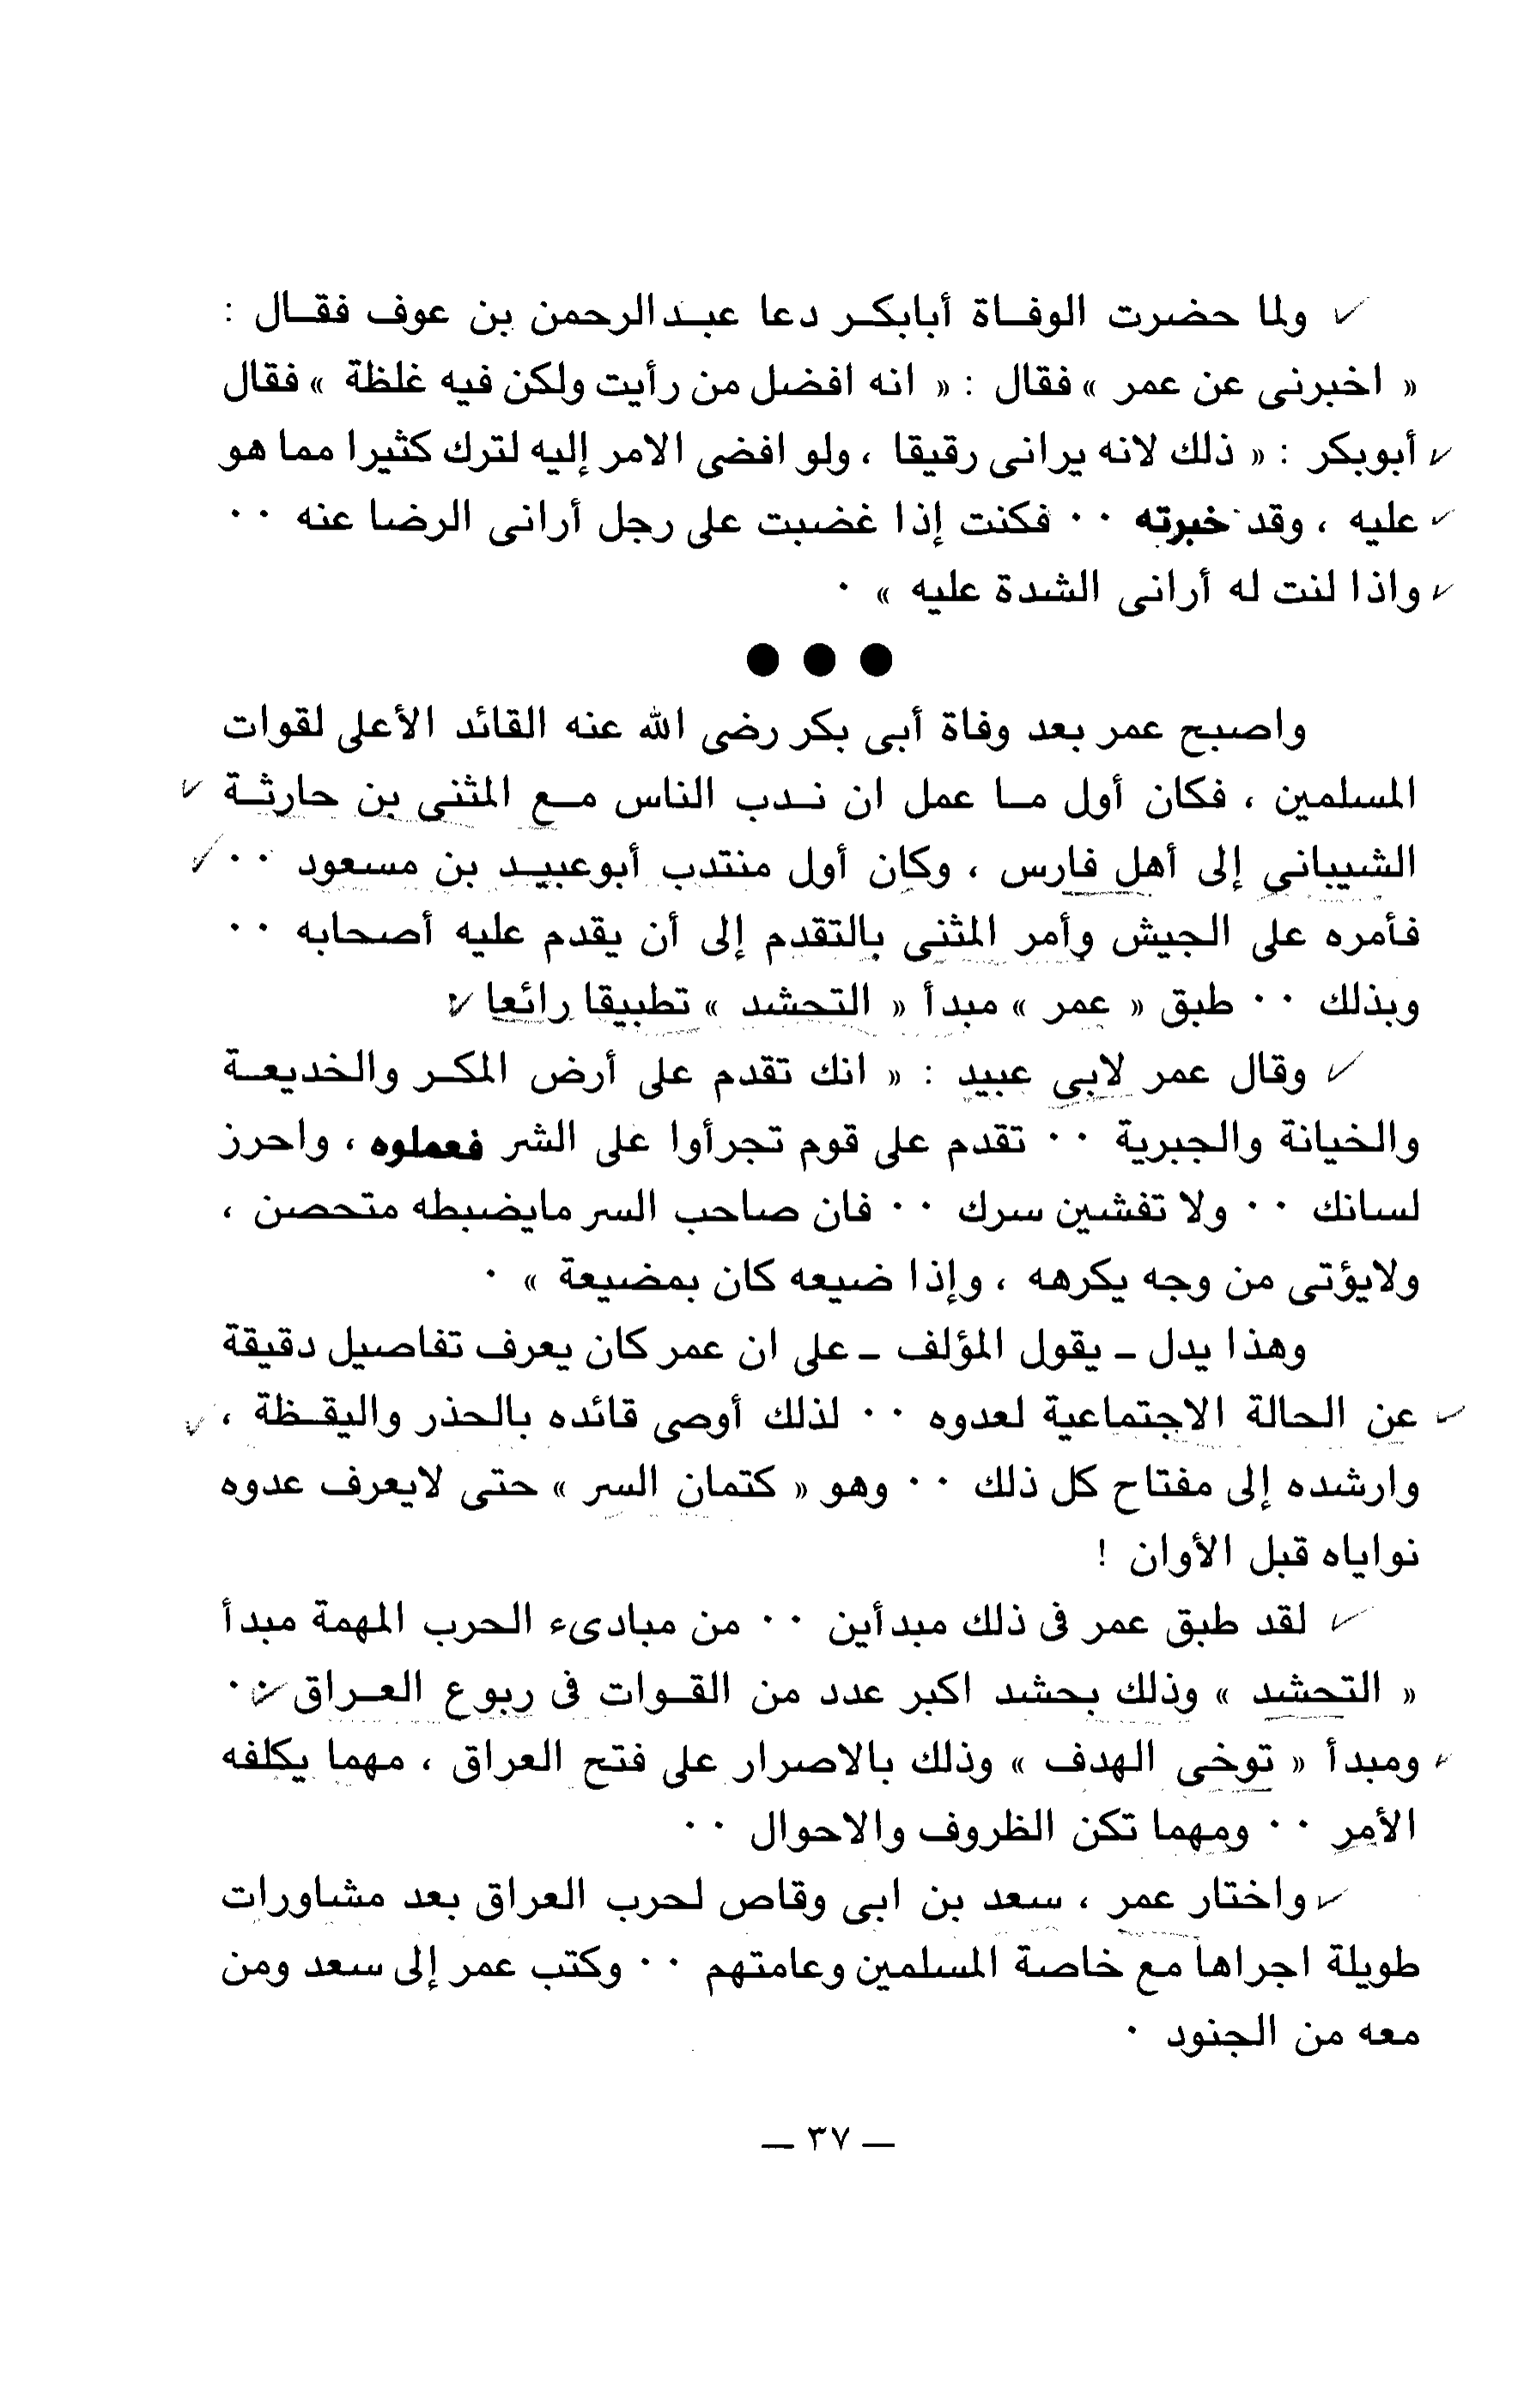 ولما حضرت الوفــاة أبابكــر دعا عبــدالرحمن بن عوف فقــال :
« اخبرنى عن عمر » فقال : « انه افضل من رأيت ولكن فيه غلظة » فقال
أبوبكر : « ذلك لانه يرانى رقيقا ، ولو افضى الامر إليه لترك كثيرا مما هو
عليه ، وقد خبرته ٠٠ فكنت إذا غضبت على رجل أرانى الرضا عنه ٠٠
واذا لنت له أرانى الشدة عليه » ٠
● ● ●
واصبح عمر بعد وفاة أبى بكر رضى الله عنه القائد الأعلى لقوات
المسلمين ، فكان أول مــا عمل ان نــدب الناس مــع المثنى بن حارثــة
الشيبانى إلى أهل فارس ، وكان أول منتدب أبوعبيــد بن مسعود ٠٠
فأمره على الجيش وأمر المثنى بالتقدم إلى أن يقدم عليه أصحابه ٠٠
وبذلك ٠٠ طبق « عمر » مبدأ « التحشد » تطبيقا رائعا
وقال عمر لابى عبيد : « انك تقدم على أرض المكــر والخديعــة
والخيانة والجبرية ٠٠ تقدم على قوم تجرأوا على الشر فعملوه ، واحرز
لسانك ٠٠ ولا تفشين سرك ٠٠ فان صاحب السر مايضبطه متحصن ،
ولايؤتى من وجه يكرهه ، وإذا ضيعه كان بمضيعة » ٠
وهذا يدل ـ يقول المؤلف ـ على ان عمر كان يعرف تفاصيل دقيقة
عن الحالة الاجتماعية لعدوه ٠٠ لذلك أوصى قائده بالحذر واليقــظة ،
وارشده إلى مفتاح كل ذلك ٠٠ وهو « كتمان السر » حتى لايعرف عدوه
نواياه قبل الأوان !
لقد طبق عمر فى ذلك مبدأين ٠٠ من مبادىء الحرب المهمة مبدأ
« التحشد » وذلك بحشد اكبر عدد من القــوات فى ربوع العــراق ٠٠
ومبدأ « توخى الهدف » وذلك بالاصرار على فتح العراق ، مهما يكلفه
الأمر ٠٠ ومهما تكن الظروف والاحوال ٠٠
واختار عمر ، سعد بن ابى وقاص لحرب العراق بعد مشاورات
طويلة اجراها مع خاصة المسلمين وعامتهم ٠٠ وكتب عمر إلى سعد ومن
معه من الجنود ٠
— ٣٧ —